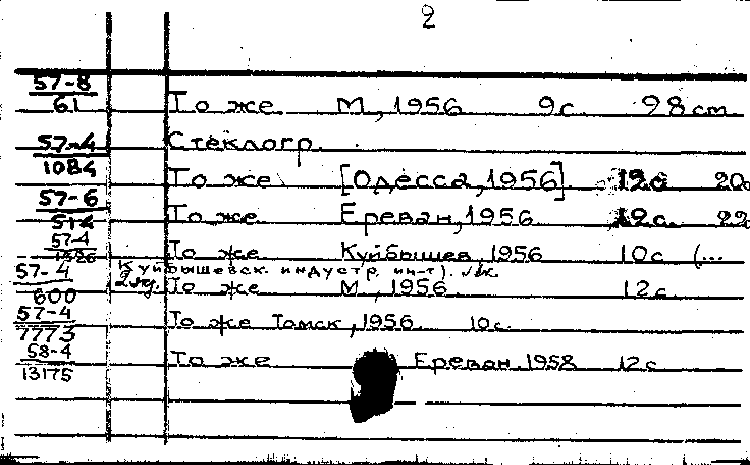 2
57-8
61 То же М, 1956 9с 98 см
Стеклогр.
57-4
1084 То же [Одесса, 1956] 12с 20
57-6
514 То же Ереван, 1956 12с. 22
57-4
То же Куйбышев, 1956 10с (...
Куйбышевск. индустр. ин-т).
57-4
600 То же М, 1956 12с
57-4
7773 То же Томск, 1956 10с.
58-4
13175 То же Ереван, 1958 12с